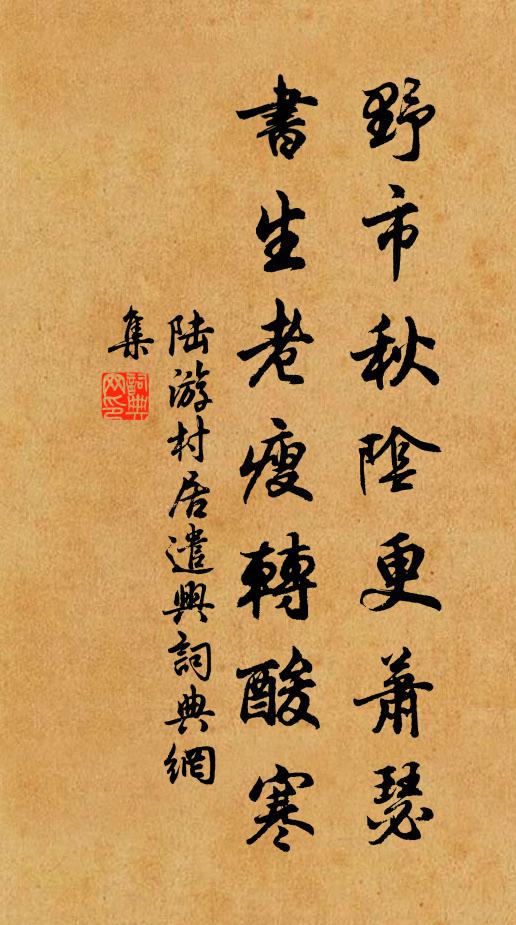 野市秋陰更蕭瑟
書生老瘦轉酸寒
陸游村居遣興詞典網
集
詞典网印